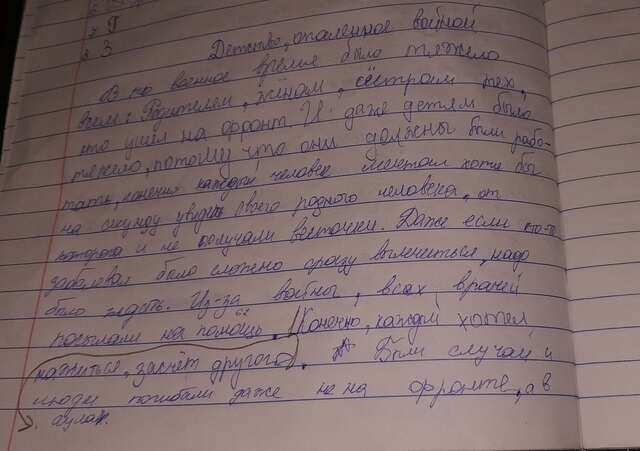 2 Г
3 З
Детство, опаленное войной
В то военное время было тяжело
всем: Родителем, жёнам, сёстрам тех,
кто ушёл на фронт. И даже детям было
тяжело, потому что они должены были рабо-
тать, конечно каждый человек мечтал хотя бы
на секунду увидеть своего родного человека, от
которого и не получали весточки. Даже если кто-то
заболевал было сложено сразу вылечиться, надо
было ждать. Из-за войны, всех врачей
посылали на помощь. (Конечно, каждый хотел
нажиться, засчёт другого). Были случаи и
люди погибали даже не на фронте, а в
аулах.